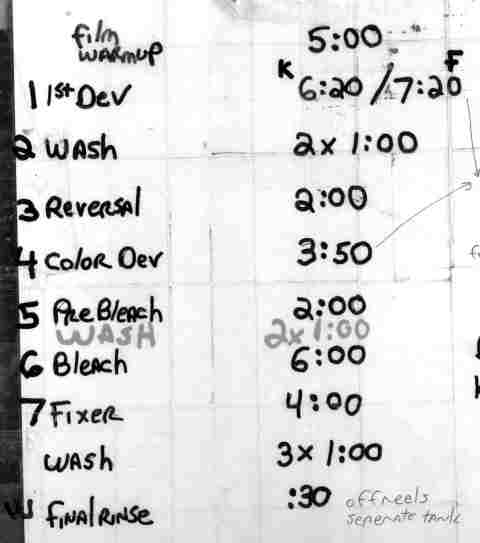 film
WARMUP 5:00
K F
1 1st Dev 6:20 / 7:20
2 WASH 2x 1:00
3 Reversal 2:00
4 Color Dev 3:50
5 Pre Bleach 2:00
WASH 2x 1:00
6 Bleach 6:00
7 Fixer 4:00
WASH 3x 1:00
FINAL RINSE :30
off reels
seperate tank